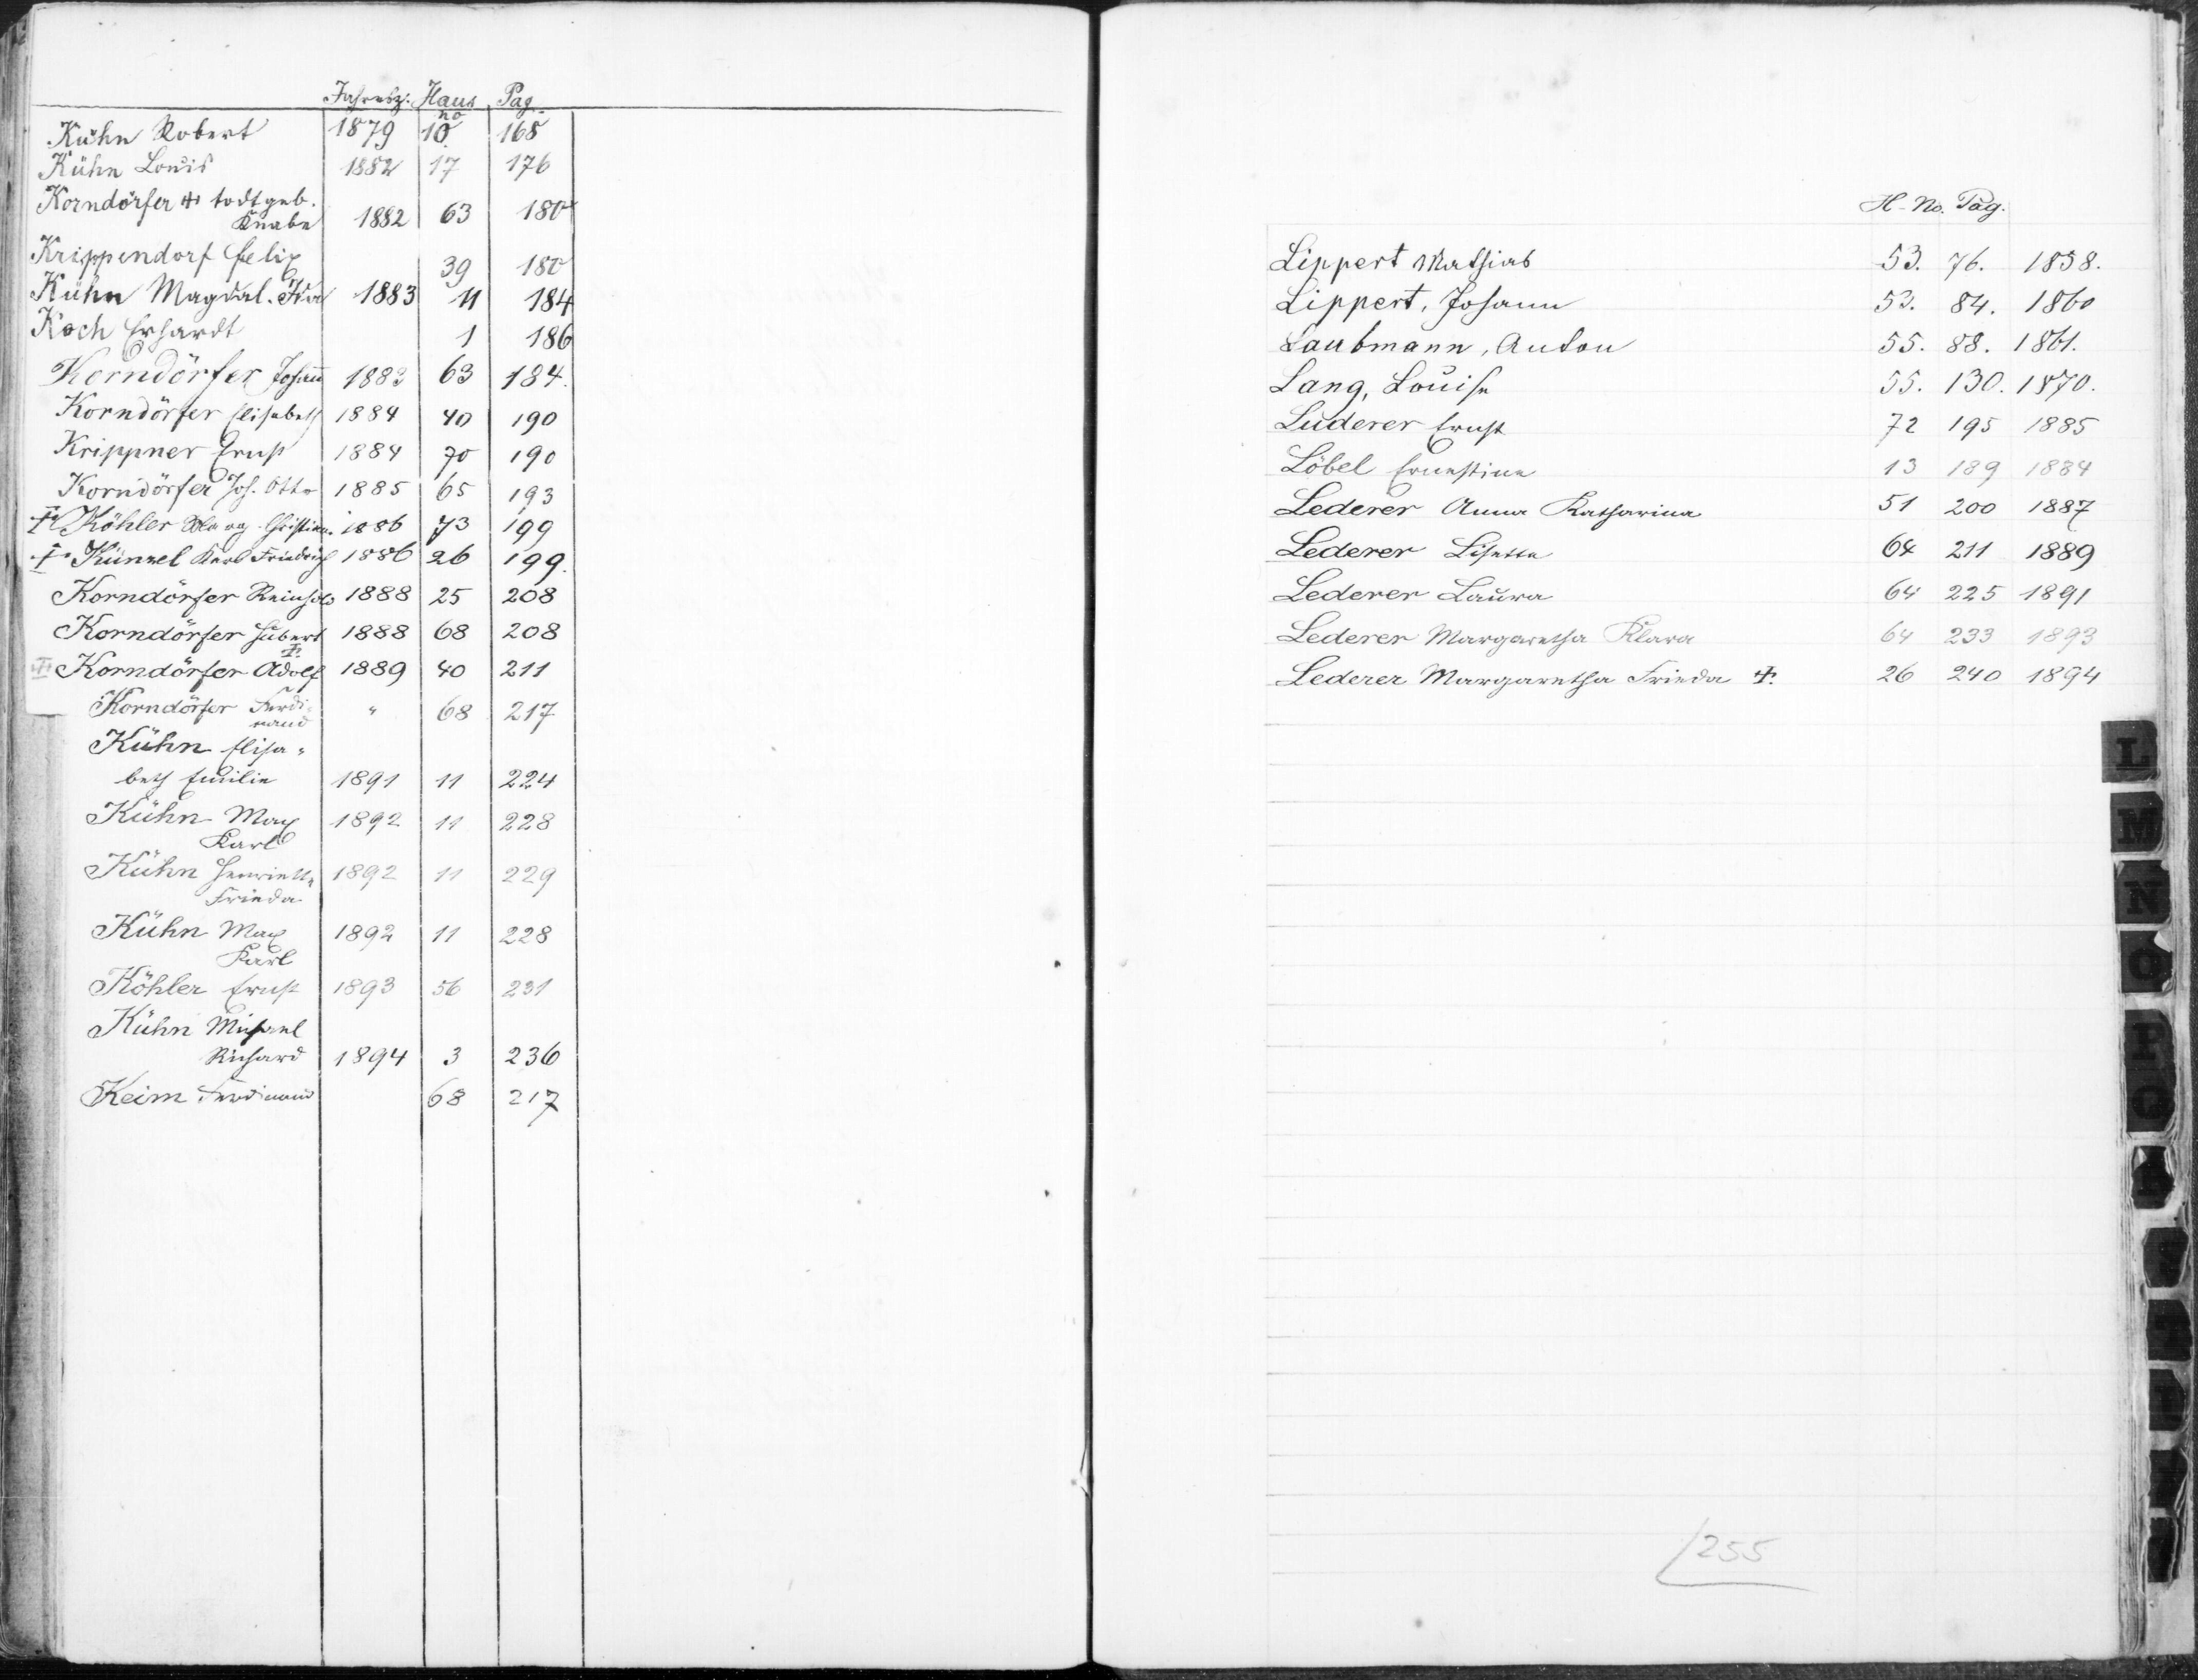 Jahresz. Haus no Pag.
Kühn Robert 1879 10 168
Kühn Louis 1882 17 176
Korndörfer todtgeb.
Knabe 1882 63 180
Krippendorf Felix 39 180
Kühn Magdal. Ida 1883 11 184
Koch Erhardt 1 186
Korndörfer Johann 1883 63 184.
Korndörfer Elisabeth 1884 40 190
Krippner Ernst 1884 70 190
Korndörfer Joh. Otto 1885 65 193
Köhler Christian. 1886 73 199
Künzel Karl Friedrich 1886 26 199.
Korndörfer Reinhold 1888 25 208
Korndörfer Hubert 1888 68 208
Korndörfer Adolf 1889 40 211
Korndörfer Ferdi-
nand " 68 217
Kühn Elisa-
beth Emilie 1891 11 224
Kühn Max 1892 11 228
Karl
Kühn Henriette 1892 11 229
Frieda
Kühn Max 1892 11 228
Karl
Köhler Ernst 1893 56 231
Kühn Michael
Richard 1894 3 236
Keim Ferdinand 68 217
H-No. Pag.
Lippert Mathias 53. 76. 1858.
Lippert, Johann 53. 84. 1860
Laubmann, Anton 55. 88. 1861.
Lang, Louise 55. 130. 1870.
Luderer Ernst 72 195 1885
Löbel Ernestine 13 189 1884
Lederer Anna Katharina 51 200 1887
Lederer Lisette 64 211 1889
Lederer Laura 64 225 1891
Lederer Margaretha Klara 64 233 1893
Lederer Margaretha Frieda 26 240 1894
L
M
N
O
P
Q
255